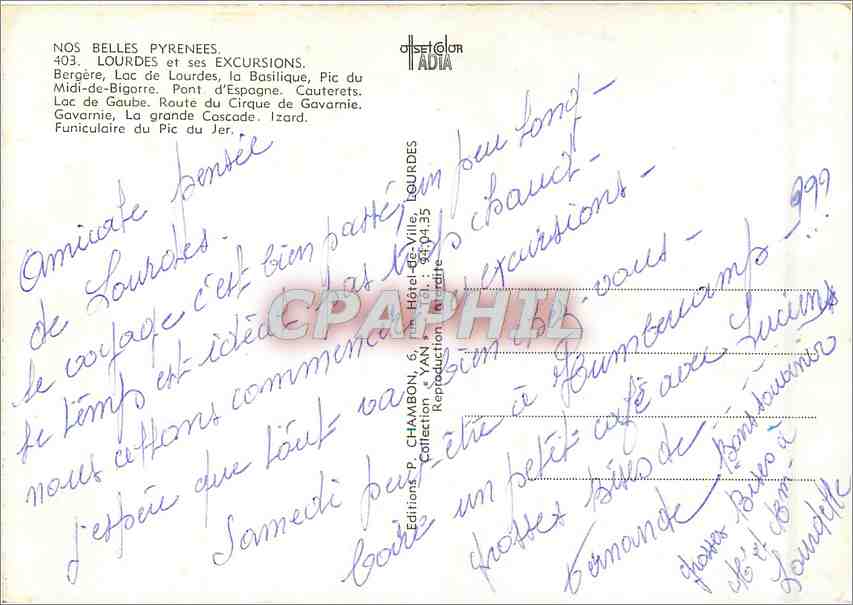 NOS BELLES PYRENEES.
403. LOURDES et ses EXCURSIONS.
Bergère, Lac de Lourdes, la Basilique, Pic du
Midi-de-Bigorre. Pont d'Espagne. Cauterets.
Lac de Gaube. Route du Cirque de Gavarnie.
Gavarnie, La grande Cascade. Izard.
Funiculaire du Pic du Jer.
OffsetColor
ADIA
Editions P. CHAMBON, 6, Hôtel-de-Ville, LOURDES
Collection « YAN » Tél. : 94.04.35
Reproduction Interdite
CPAPHIL
Amicale pensée
de Lourdes.
Le voyage c'est bien passé, un peu long -
Le temps est idéal - pas trop chaud -
nous allons commencer excursions -
j'espère que tout va bien chez vous -
Samedi peut-être à
boire un petit café avec Lucienne
grosses bises de
Fernande
Bons souvenirs
grosses Bises à
Mr et Mm